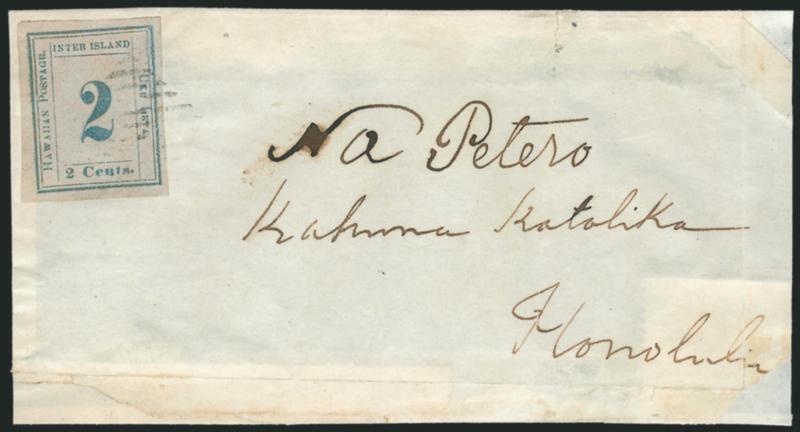 INTER ISLAND
HAWAIIAN POSTAGE.
2
2 Cents.
Na Petero
Kahuna Katolika
Honolulu